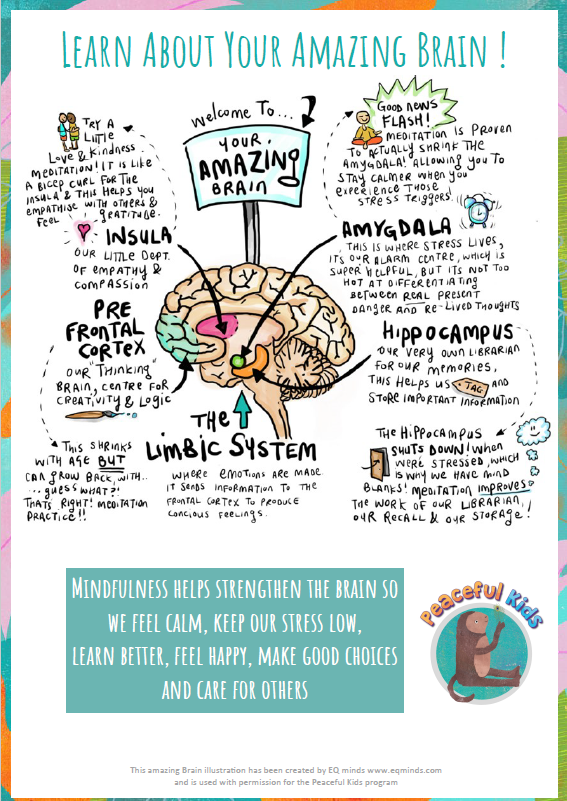 LEARN ABOUT YOUR AMAZING BRAIN !
welcome To...
YOUR
AMAZING
BRAIN
TRY A
LITTLE
LOVE & KINDNESS
MEDITATION! IT IS LIKE
A BICEP CURL FOR THE
INSULA & THIS HELPS YOU
EMPATHISE WITH OTHERS &
FEEL GRATITUDE.
GOOD NEWS
FLASH!
MEDITATION IS PROVEN
TO ACTUALLY SHRINK THE
AMYGDALA! ALLOWING YOU TO
STAY CALMER WHEN YOU
EXPERIENCE THOSE
STRESS TRIGGERS!
INSULA
OUR LITTLE DEPT.
OF EMPATHY &
COMPASSION
AMYGDALA
THIS IS WHERE STRESS LIVES,
ITS OUR ALARM CENTRE, WHICH IS
SUPER HELPFUL, BUT ITS NOT TOO
HOT AT DIFFERENTIATING
BETWEEN REAL PRESENT
DANGER AND RE-LIVED THOUGHTS
PRE
FRONTAL
CORTEX
OUR "THINKING
BRAIN, CENTRE FOR
CREATIVITY & LOGIC
HIPPOCAMPUS
OUR VERY OWN LIBRARIAN
FOR OUR MEMORIES,
THIS HELPS US TAG AND
STORE IMPORTANT INFORMATION
THE
LIMBIC SYSTEM
WHERE EMOTIONS ARE MADE
IT SENDS INFORMATION TO THE
FRONTAL CORTEX TO PRODUCE
CONCIOUS FEELINGS.
THIS SHRINKS
WITH AGE BUT
CAN GROW BACK, WITH..
...GUESS WHAT?!
THATS RIGHT! MEDITATION
PRACTICE!!
THE HIPPOCAMPUS
SHUTS DOWN! WHEN
WERE STRESSED, WHICH
IS WHY WE HAVE MIND
BLANKS! MEDITATION IMPROVES
THE WORK OF OUR LIBRARIAN,
OUR RECALL & OUR STORAGE!
MINDFULNESS HELPS STRENGTHEN THE BRAIN SO
WE FEEL CALM, KEEP OUR STRESS LOW,
LEARN BETTER, FEEL HAPPY, MAKE GOOD CHOICES
AND CARE FOR OTHERS
Peaceful Kids
This amazing Brain illustration has been created by EQ minds www.eqminds.com
and is used with permission for the Peaceful Kids program